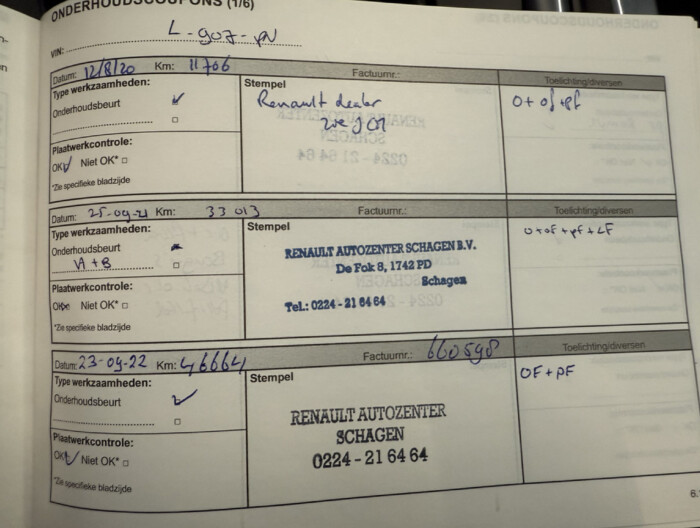 ONDERHOUDSCOUPONS (1/6)
VIN: L-907-PN
Datum: 12/8/20 Km: 11706 Factuurnr.: Toelichting/diversen
Type werkzaamheden: Stempel
Onderhoudsbeurt Renault dealer O+of+pf
Plaatwerkcontrole:
OK Niet OK*
*Zie specifieke bladzijde
Datum: 25-09-21 Km: 33 013 Factuurnr.: Toelichting/diversen
Type werkzaamheden: Stempel O+oF+pF+LF
Onderhoudsbeurt RENAULT AUTOZENTER SCHAGEN B.V.
VI + B De Fok 8, 1742 PD
Plaatwerkcontrole: Schagen
OK Niet OK* Tel.: 0224 - 21 64 64
*Zie specifieke bladzijde
Datum: 23-09-22 Km: 46664 Factuurnr.: 660598 Toelichting/diversen
Type werkzaamheden: Stempel OF+PF
Onderhoudsbeurt RENAULT AUTOZENTER
SCHAGEN
Plaatwerkcontrole: 0224 - 21 64 64
OK Niet OK*
*Zie specifieke bladzijde